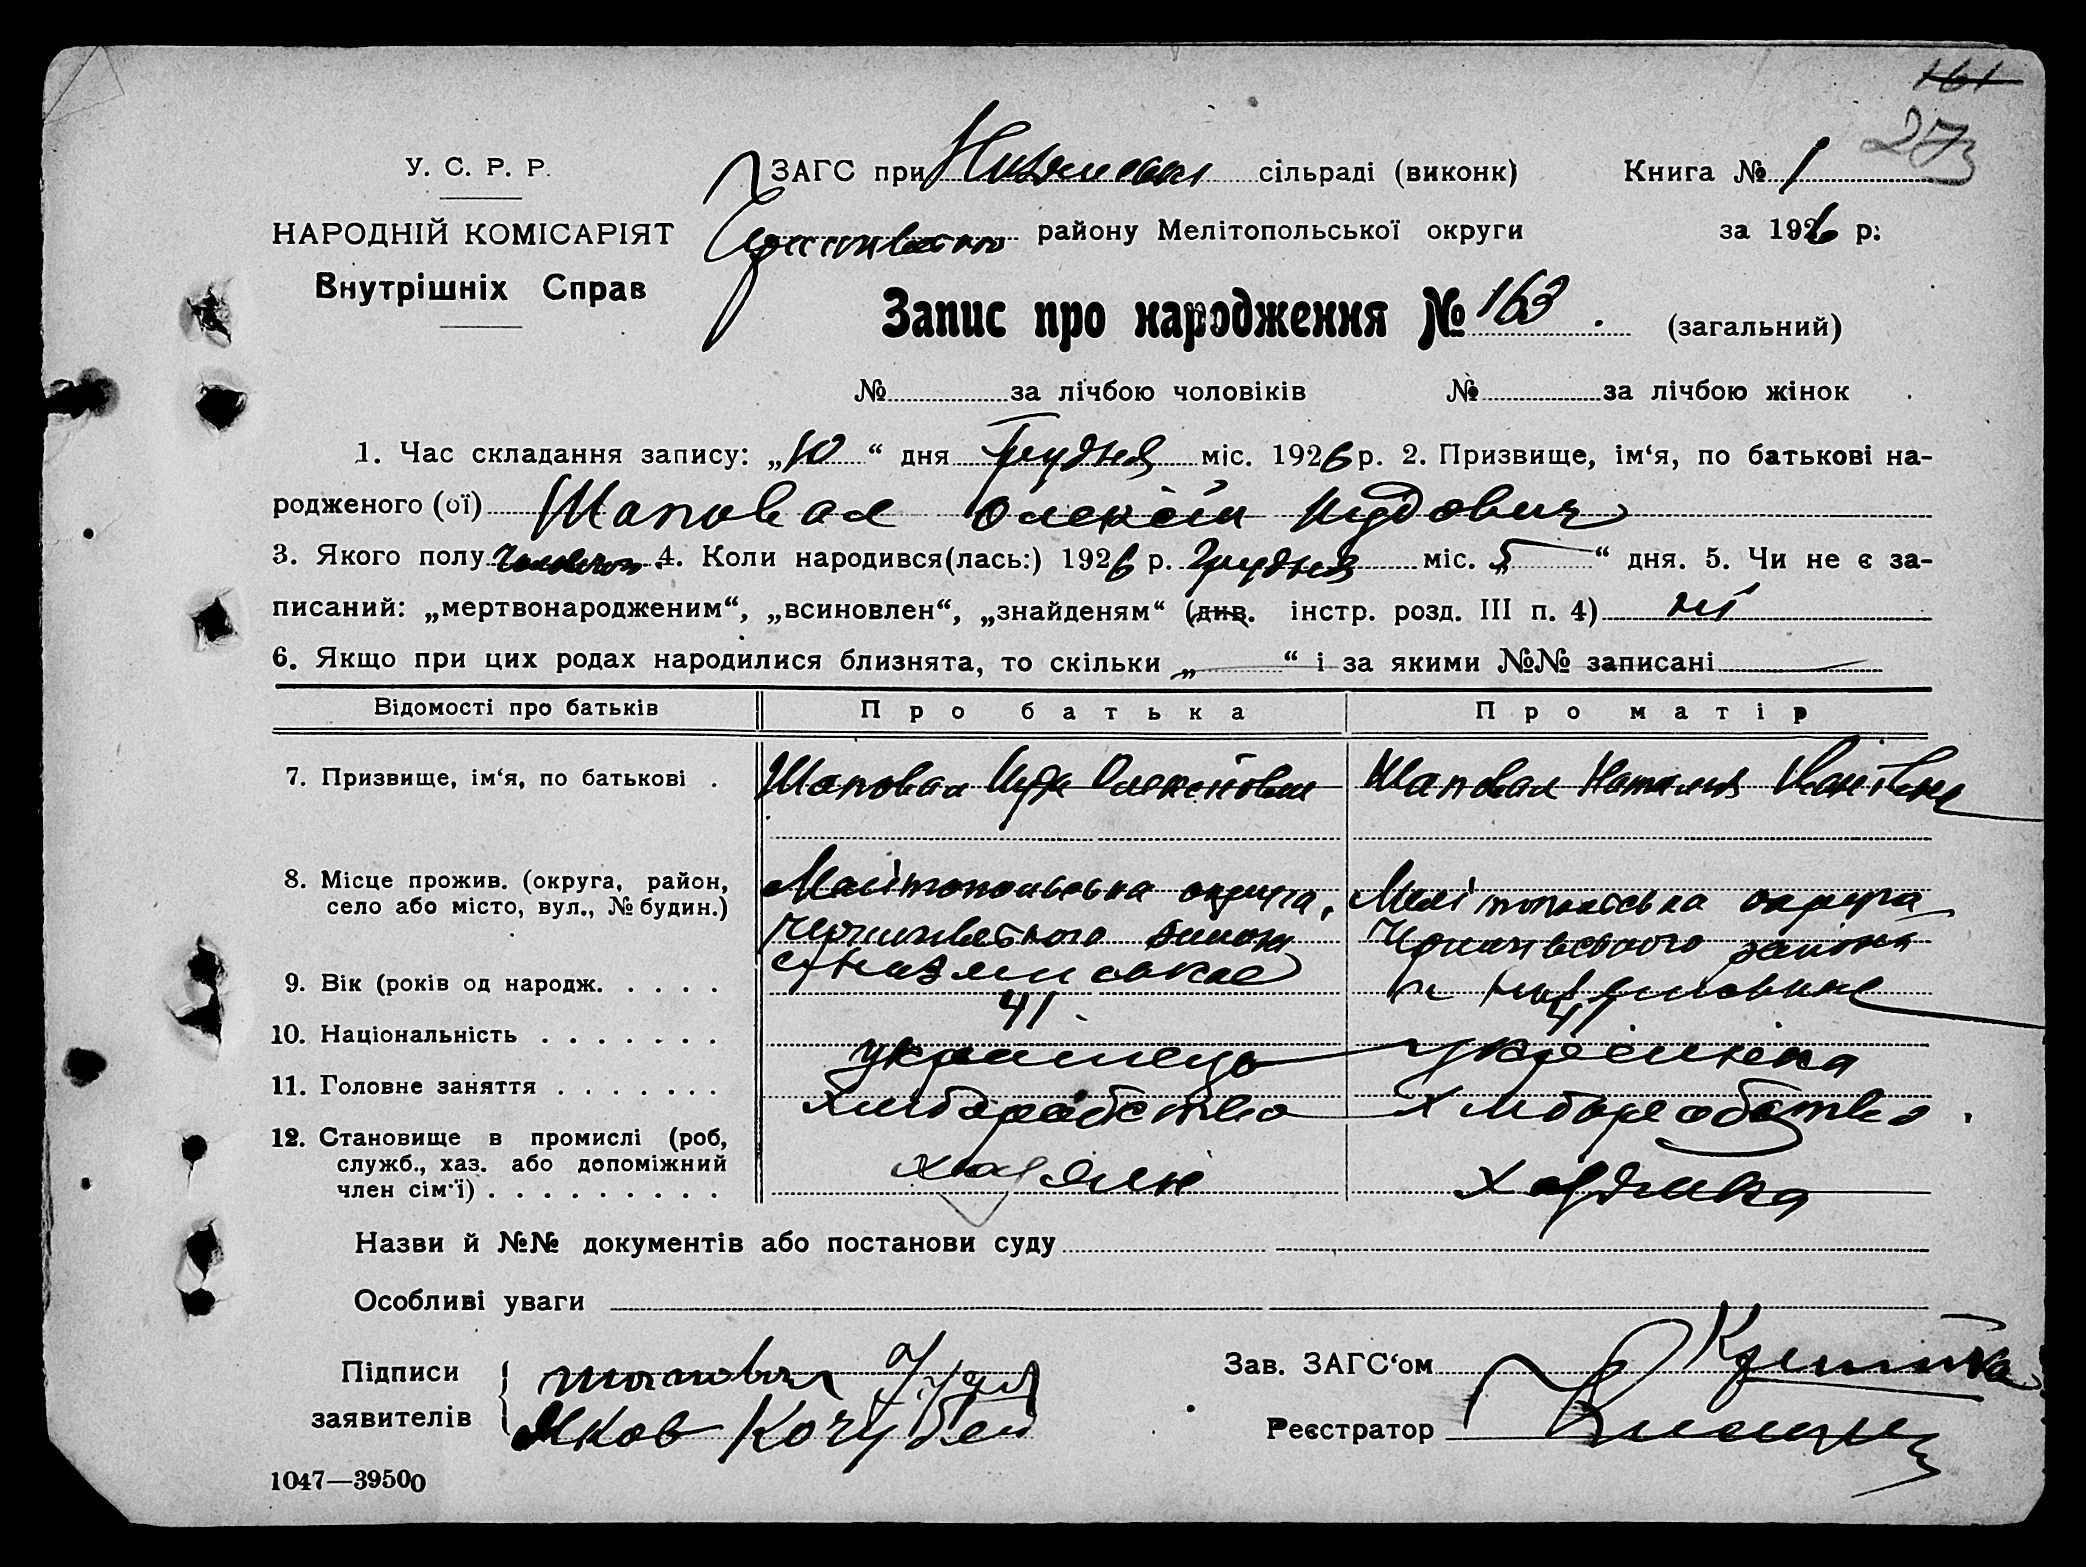 161
273
У. С. Р. Р.
ЗАГС при сільраді (виконк) Книга № 1
НАРОДНІЙ КОМІСАРІЯТ
району Мелітопольської округи за 1926 р:
Внутрішніх Справ
Запис про народження № 163. (загальний)
№ за лічбою чоловіків № за лічбою жінок
1. Час складання запису: „10“ дня Грудня міс. 1926 р. 2. Призвище, ім‘я, по батькові на-
родженого (ої) Шаповал Олексій Юдович
3. Якого полу 4. Коли народився(лась:) 1926 р. Грудня міс. „5“ дня. 5. Чи не є за-
писаний: „мертвонародженим“, „всиновлен“, „знайденям“ (див. інстр. розд. III п. 4) ні
6. Якщо при цих родах народилися близнята, то скільки „ “ і за якими №№ записані
Відомості про батьків Про батька Про матір
7. Призвище, ім‘я, по батькові . Шаповал Юда Олексійович Шаповал Наталія Іванівна
8. Місце прожив. (округа, район, Мелітопольська округа, Мелітопольська округа
село або місто, вул., № будин.)
района района
9. Вік (років од народж. . . . . 41 41
10. Національність . . . . . . . українець українка
11. Головне заняття . . . . . . . хліборобство хліборобство
12. Становище в промислі (роб, хазяін хазяйка
служб., хаз. або допоміжний
член сім'ї) . . . . . . . . .
Назви й №№ документів або постанови суду
Особливі уваги
Підписи шаповал Юда Зав. ЗАГС‘ом
заявителів Яков Кочубей Реєстратор
1047—39500